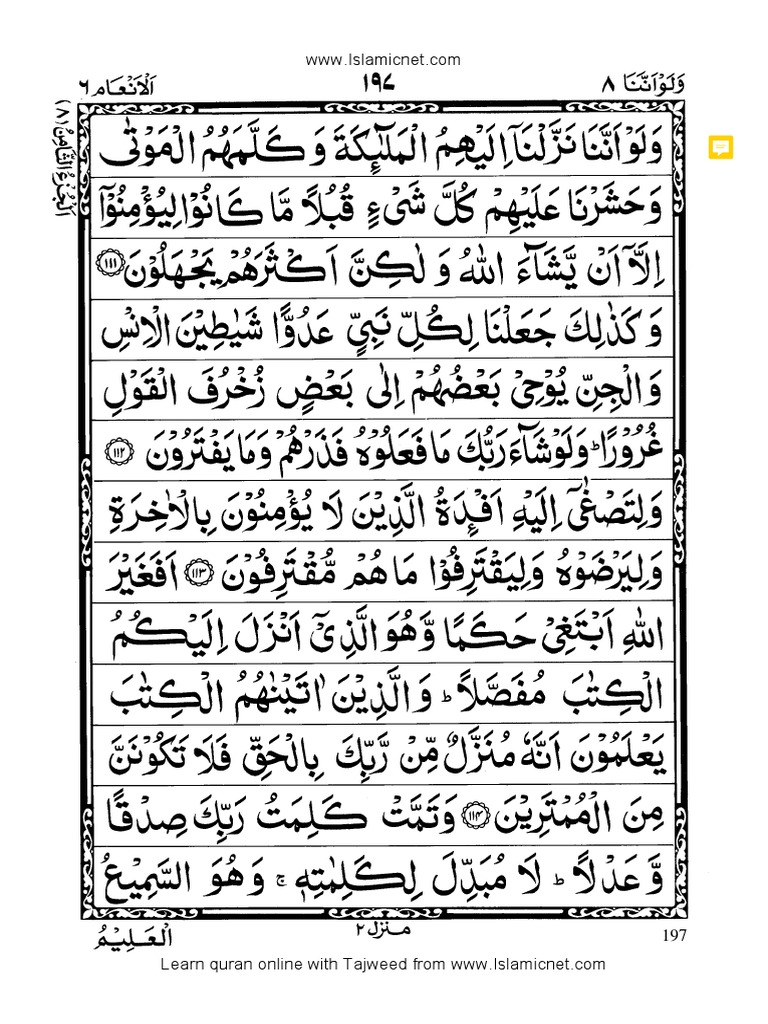 www.Islamicnet.com
وَلَوْ اَنَّنَا ٨
١٩٧
اَلْاَنْعَام ٦
اَلْجُزْءُ الثَّامِنُ (٨)
وَلَوْ اَنَّنَا نَزَّلْنَاۤ اِلَیْهِمُ الْمَلٰٓىِٕكَةَ وَ كَلَّمَهُمُ الْمَوْتٰی
وَ حَشَرْنَا عَلَیْهِمْ كُلَّ شَیْءٍ قُبُلًا مَّا كَانُوْا لِیُؤْمِنُوْۤا
اِلَّاۤ اَنْ یَّشَآءَ اللّٰهُ وَ لٰكِنَّ اَكْثَرَهُمْ یَجْهَلُوْنَ ﴿١١١﴾
وَ كَذٰلِكَ جَعَلْنَا لِكُلِّ نَبِیٍّ عَدُوًّا شَیٰطِیْنَ الْاِنْسِ
وَ الْجِنِّ یُوْحِیْ بَعْضُهُمْ اِلٰی بَعْضٍ زُخْرُفَ الْقَوْلِ
غُرُوْرًا ؕ وَ لَوْ شَآءَ رَبُّكَ مَا فَعَلُوْهُ فَذَرْهُمْ وَ مَا یَفْتَرُوْنَ ﴿١١٢﴾
وَ لِتَصْغٰۤی اِلَیْهِ اَفْـِٕدَةُ الَّذِیْنَ لَا یُؤْمِنُوْنَ بِالْاٰخِرَةِ
وَ لِیَرْضَوْهُ وَ لِیَقْتَرِفُوْا مَا هُمْ مُّقْتَرِفُوْنَ ﴿١١٣﴾ اَفَغَیْرَ
اللّٰهِ اَبْتَغِیْ حَكَمًا وَّ هُوَ الَّذِیْۤ اَنْزَلَ اِلَیْكُمُ
الْكِتٰبَ مُفَصَّلًا ؕ وَ الَّذِیْنَ اٰتَیْنٰهُمُ الْكِتٰبَ
یَعْلَمُوْنَ اَنَّهٗ مُنَزَّلٌ مِّنْ رَّبِّكَ بِالْحَقِّ فَلَا تَكُوْنَنَّ
مِنَ الْمُمْتَرِیْنَ ﴿١١٤﴾ وَ تَمَّتْ كَلِمَتُ رَبِّكَ صِدْقًا
وَّ عَدْلًا ؕ لَا مُبَدِّلَ لِكَلِمٰتِهٖ ۚ وَ هُوَ السَّمِیْعُ
الْعَلِیْمُ
منزل ٢
197
Learn quran online with Tajweed from www.Islamicnet.com